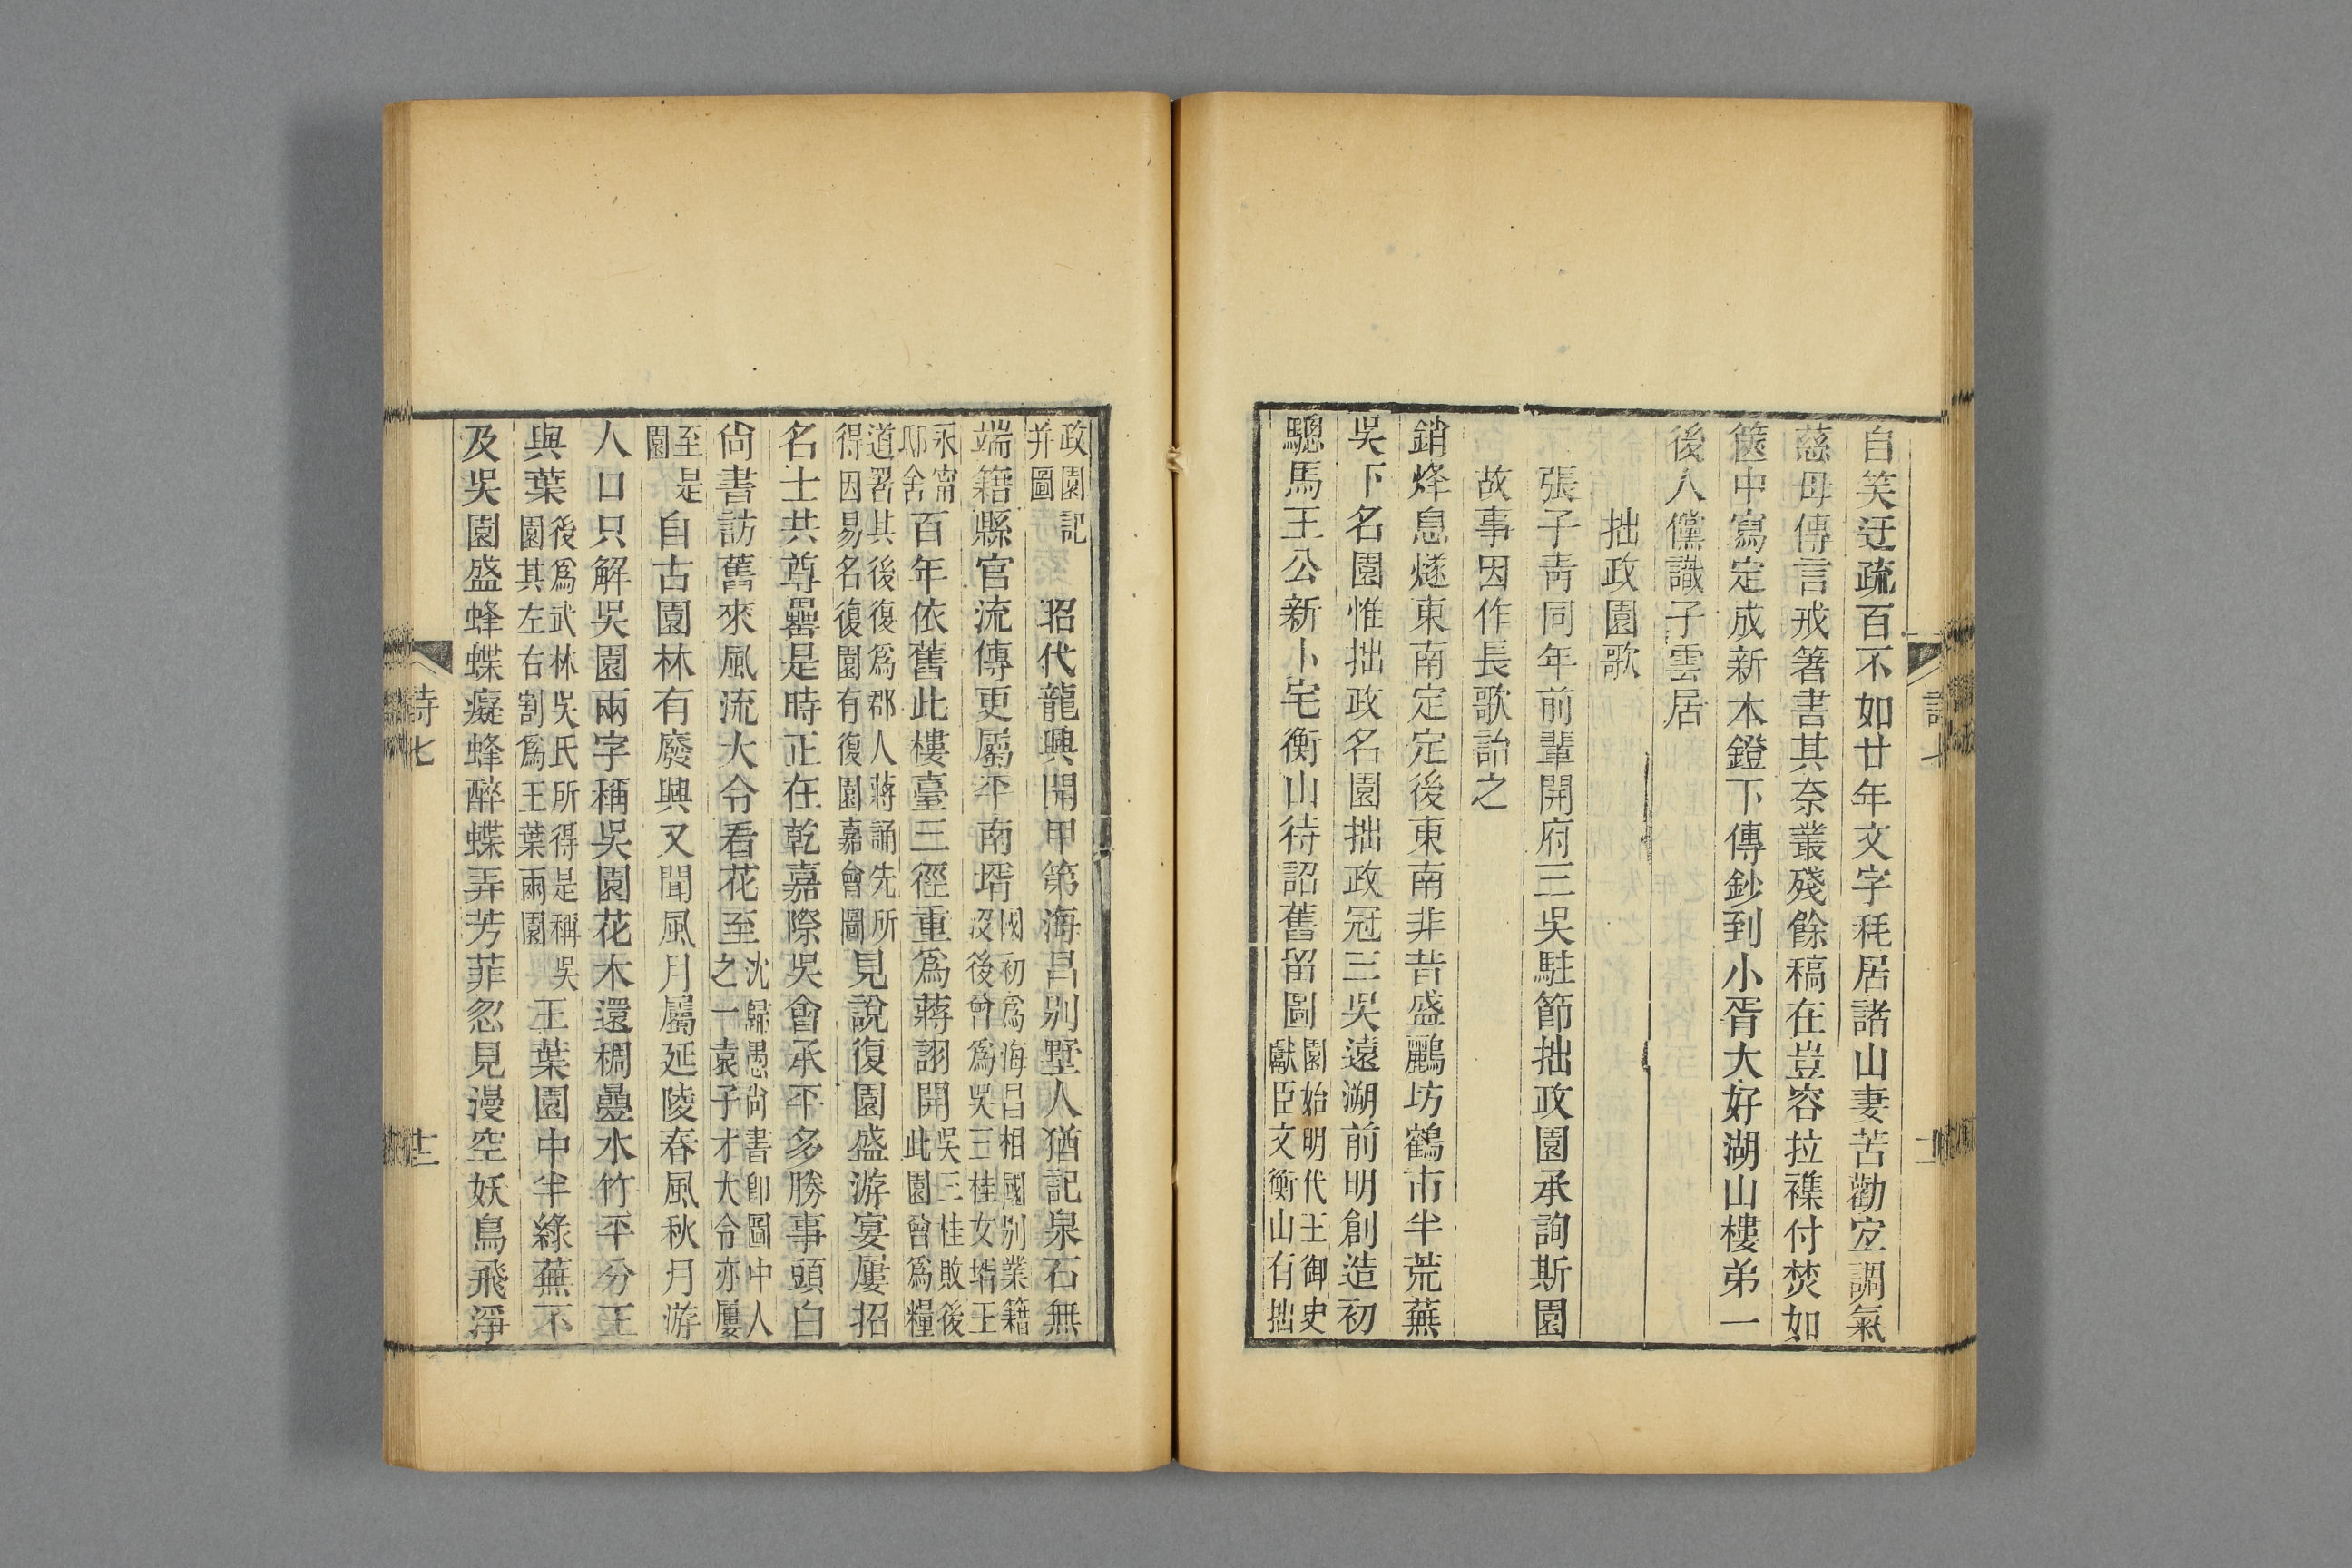 自笑迂疏百不如廿年文字秏居諸山妻苦勸宐調氣
慈母傳言戒箸書其奈叢殘餘稿在豈容拉襍付焚如
篋中寫定成新本鐙下傳鈔到小胥大好湖山樓弟一
後人儻識子雲居
拙政園歌
張子靑同年前輩開府三吳駐節拙政園承詢斯園
故事因作長歌詒之
銷烽息燧東南定定後東南非昔盛鸝坊鶴市半荒蕪
吳下名園惟拙政名園拙政冠三吳遠溯前明創造初
驄馬王公新卜宅衡山待詔舊留圖園始明代王御史獻臣文衡山有拙
詩七
政園記并圖昭代龍興開甲第海昌別墅人猶記泉石無
端籍縣官流傳更屬平南壻國初爲海昌相國別業籍沒後曾爲吳三桂女壻王
永甯邸舍百年依舊此樓臺三徑重爲蔣詡開吳三桂敗後此園曾爲糧
道署其後復爲郡人蔣誦先所得因易名復園有復園嘉會圖見說復園盛游宴屢招
名士共尊罍是時正在乾嘉際吳會承平多勝事頭白
尙書訪舊來風流大令看花至沈歸愚尙書卽圖中人之一袁子才大令亦屢
至是園自古園林有廢興又聞風月屬延陵春風秋月游
人口只解吳園兩字稱吳園花木還稠疊水竹平分王
與葉後爲武林吳氏所得是稱吳園其左右割爲王葉兩園王葉園中半綠蕪不
及吳園盛蜂蝶癡蜂醉蝶弄芳菲忽見漫空妖鳥飛淨
詩七
十二